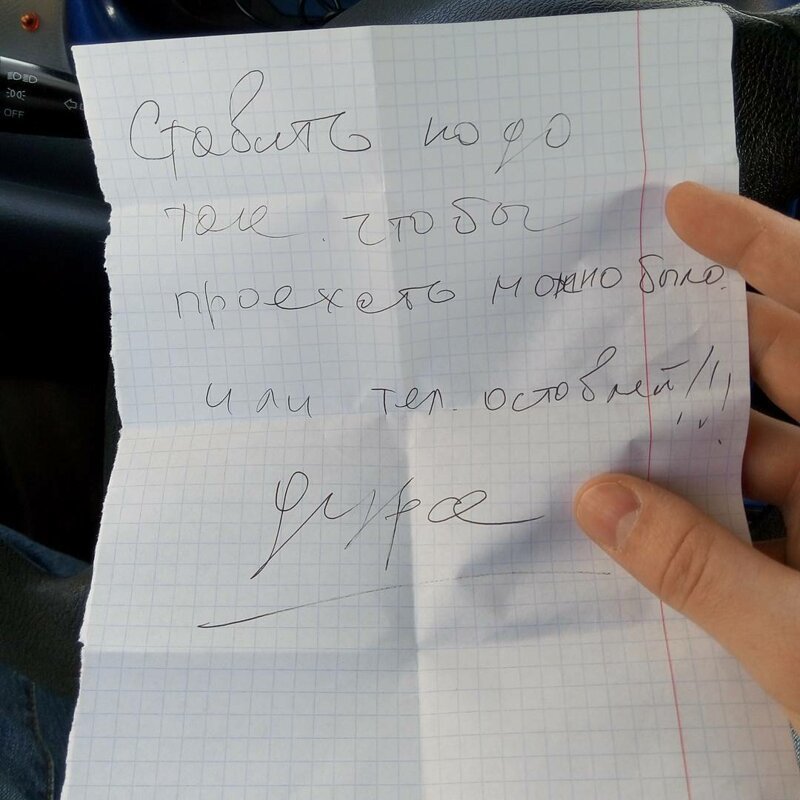 OFF
Ставить надо
так. чтобы
проехать можно было.
или тел. оставляй!!!
дура